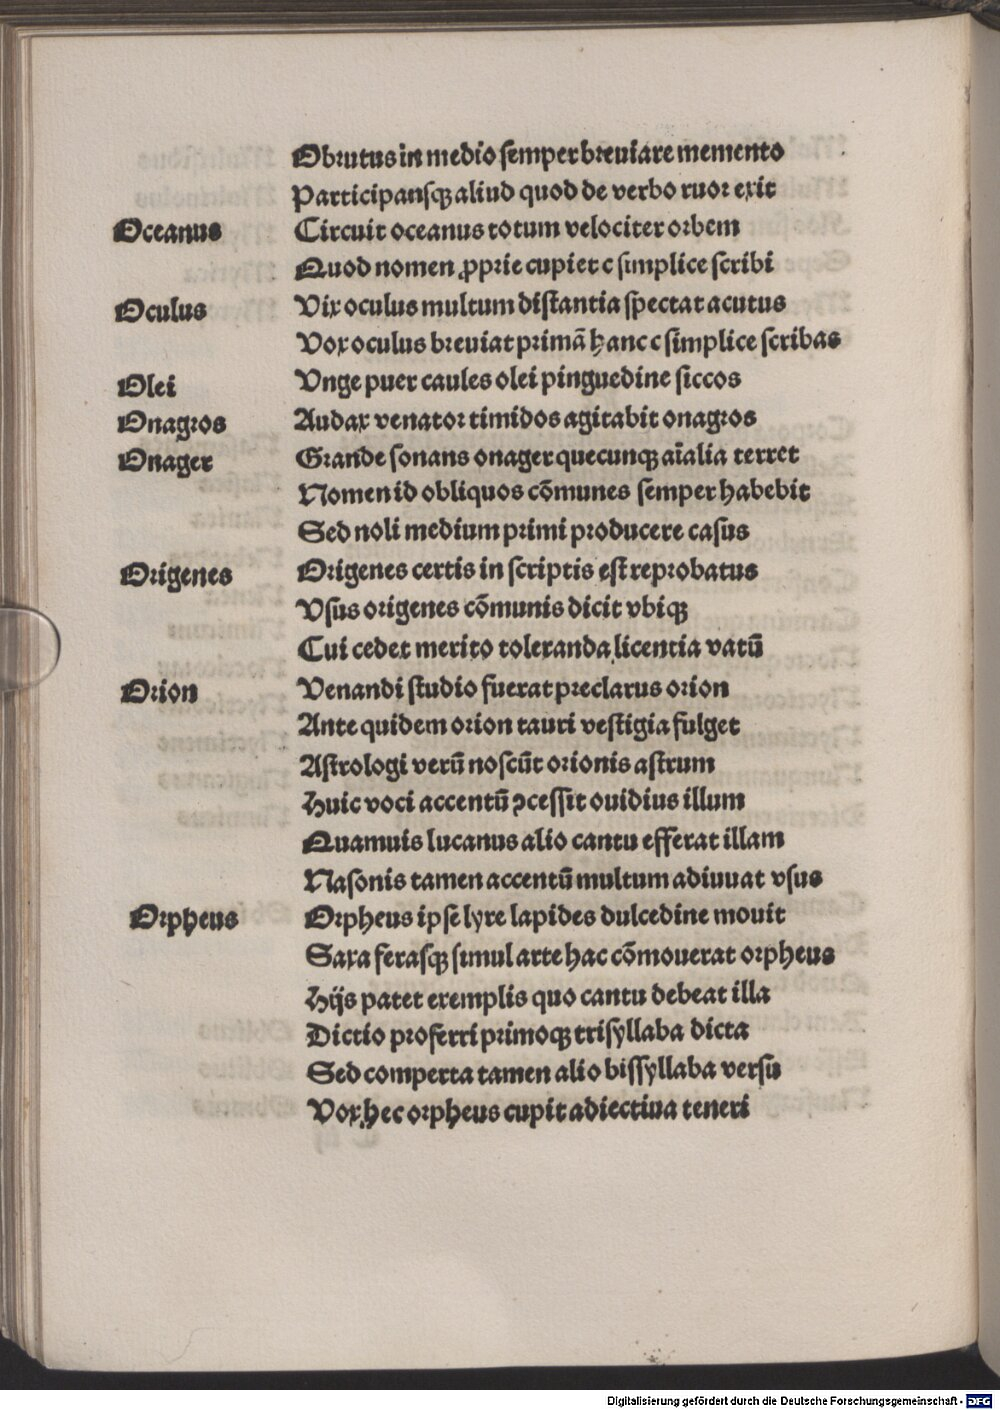 Obrutus in medio semper breuiare memento
Participansqꝫ aliud quod de verbo ruor exit
Oceanus Circuit oceanus totum velociter orbem
Quod nomen ꝓprie cupiet c simplice scribi
Oculus Vix oculus multum distantia spectat acutus
Vox oculus breuiat primā hanc c simplice scribas
Olei Vnge puer caules olei pinguedine siccos
Onagros Audax venator timidos agitabit onagros
Onager Grande sonans onager quecunqꝫ aīalia terret
Nomen id obliquos cōmunes semper habebit
Sed noli medium primi producere casus
Origenes Origenes certis in scriptis est reprobatus
Vsus origenes cōmunis dicit vbiqꝫ
Cui cedet merito toleranda licentia vatū
Orion Venandi studio fuerat preclarus orion
Ante quidem orion tauri vestigia fulget
Astrologi verū noscūt orionis astrum
Huic voci accentū ꝯcessit ouidius illum
Quamuis lucanus alio cantu efferat illam
Nasonis tamen accentū multum adiuuat vsus
Orpheus Orpheus ipse lyre lapides dulcedine mouit
Saxa ferasqꝫ simul arte hac cōmouerat orpheus
Hijs patet exemplis quo cantu debeat illa
Dictio proferri primoqꝫ trisyllaba dicta
Sed comperta tamen alio bissyllaba versu
Vox hec orpheus cupit adiectiua teneri
Digitalisierung gefördert durch die Deutsche Forschungsgemeinschaft - DFG